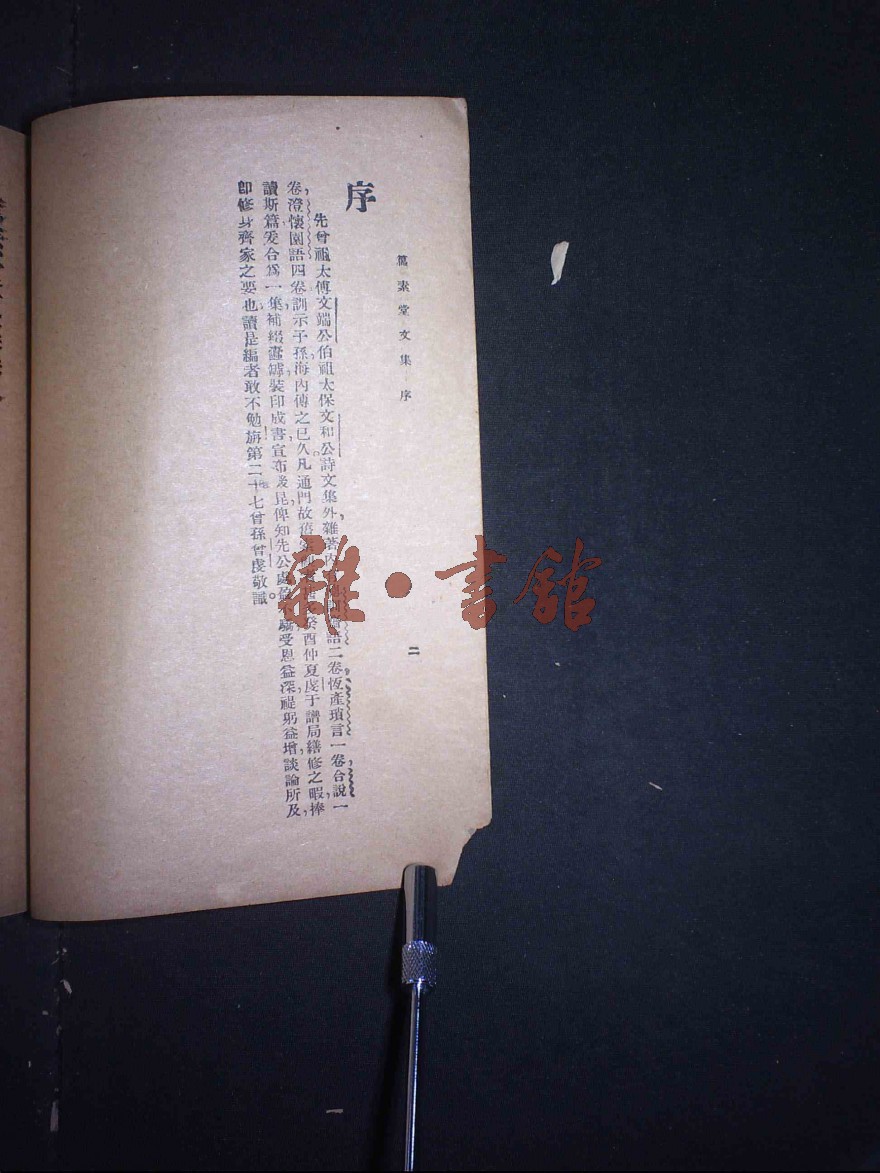 篤素堂文集序
二
序
先曾祖太傅文端公伯祖太保文和公詩文集外雜著內語二卷恆產瑣言一卷合說一
卷澄懷園語四卷訓示子孫海內傳之已久凡通門故癸酉仲夏虔于譜局繕修之暇捧
讀斯篇爰合爲一集補綴蠹罅裝印成書宣布後昆俾知先公處受恩益深禔躬益增談論所及
卽修身齊家之要也讀是編者敢不勉旃第二十七曾孫曾虔敬識
雜·書館